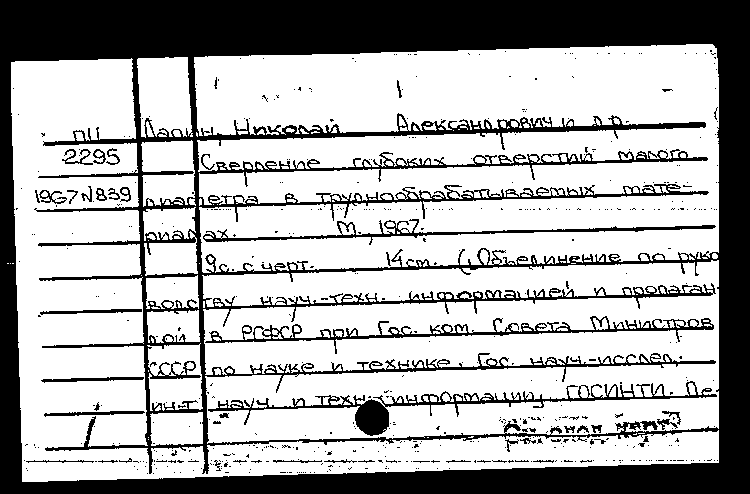 ПЦ Лапин, Николай Александрович и др.
2295 Сверление глубоких отверстий малого
1967 N 839 диаметра в труднообрабатываемых мате-
риалах. М., 1967.
9с. с черт. 14 см. (Объединение по руко
водству науч.-техн. информацией и пропаган-
дой в РСФСР при Гос. ком. Совета Министров
СССР по науке и технике. Гос. науч.-исслед.
ин-т науч. и техн. информации, ГОСИНТИ. Пе-
1